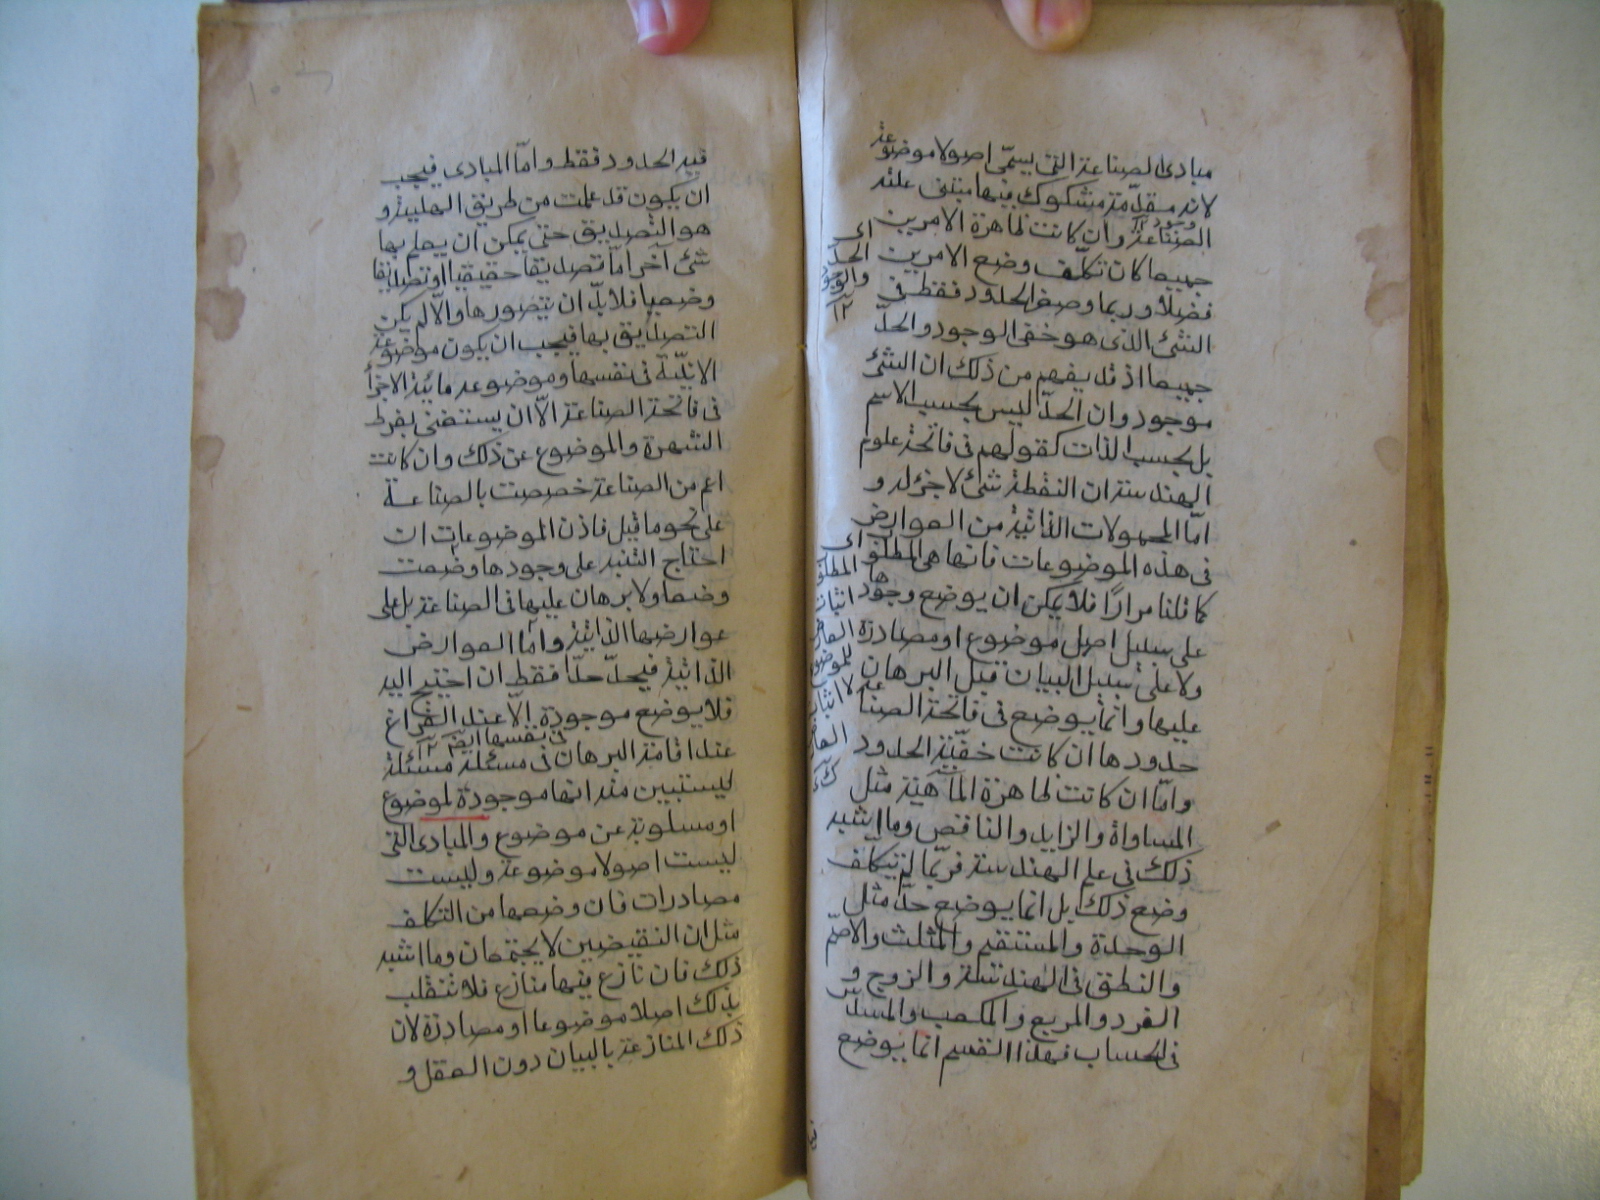 مبادئ الصناعة التى يسمّى اصولا موضوعة
لانه مقدّمة مشكوك فيها مبتنى عليه
الصناعة وان كانت ظاهرة الامرين
جميعا كان تكلّف وضع الامرين
فضلا وربما وضع الحدود فقط فى
الشئ الذى هو خفى الوجود والحدّ
جميعا اذ قد يفهم من ذلك ان الشئ
موجود وان الحدّ ليس بحسب الاسم
بل بحسب الذات كقولهم فى فاتحة علوم
الهندسة ان النقطة شئ لا جزء له و
امّا المجهولات الذاتية من العوارض
فى هذه الموضوعات فانها هى المطلوبة
كما قلنا مرارًا فلا يمكن ان يوضع وجودها
على سبيل اصل موضوع او مصادرة
ولا على سبيل البيان قبل البرهان
عليها وانما يوضع فى فاتحة الصناعة
حدودها ان كانت خفيّة الحدود
وامّا ان كانت ظاهرة الماهية مثل
المساواة والزايد والناقص وما اشبه
ذلك فى علم الهندسة فربّما لم يتكلف
وضع ذلك بل انما يوضع حدّ مثل
الوحدة والمستقيم والمثلث والاصمّ
والنطق فى الهندسة والزوج و
الفرد والمربع والمكعب والمسدّس
فى الحساب فهذا القسم انما يوضع
اى
الحدّ
والوجود
١٢
اى
المطلوب
اثبات
العارض
للموضوع
لا اثبات
العارض
فيه الحدود فقط وامّا المبادى فيجب
ان يكون قد علمت من طريق الهلية و
هو التصديق حتى يمكن ان يعلم بها
شئ آخر امّا تصديقا حقيقيا او تصديقا
وضعيا فلا بدّ ان يتصورها والّا لم يكن
التصديق بها فيجب ان يكون موضوعة
الانيّة فى نفسها وموضوعة مائية الاجزأ
فى فاتحة الصناعة الّا ان يستغنى بفرط
الشهرة والموضوع عن ذلك وان كانت
اعم من الصناعة خصصت بالصناعة
على نحو ما قيل فاذن الموضوعات ان
احتاج التنبه على وجودها وضعت
وضعا ولا برهان عليها فى الصناعة بل على
عوارضها الذاتية وامّا العوارض
الذاتية فيحدّ حدّا فقط ان احتيج اليه
فلا يوضع موجودة الّا عند الفراغ
فى نفسها ايضا ١٢
عند اقامة البرهان فى مسئلة مسئلة
ليستبين منه انها موجودة لموضوع
او مسلوبة عن موضوع والمبادئ التى
ليست اصولا موضوعة وليست
مصادرات فان وضعها من التكلف
مثل ان النقيضين لا يجتمعان وما اشبه
ذلك فان نازع فيها منازع فلا تنقلب
بذلك اصلا موضوعا او مصادرة لان
ذلك المنازعة بالبيان دون العقل و